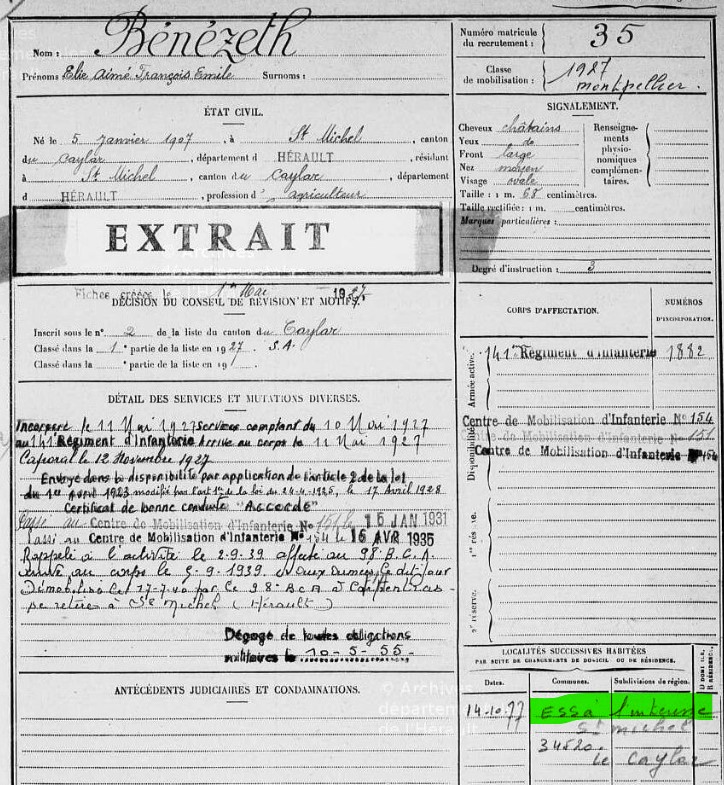 Nom : Bénézeth
Prénoms Elie Aimé François Emile Surnoms :
ÉTAT CIVIL.
Né le 5 Janvier 1907, à St Michel, canton
du Caylar, département d HÉRAULT, résidant
à St Michel, canton du Caylar, département
d HÉRAULT, profession d' agriculteur
EXTRAIT
Fiches créée le 1er Mai 1927.
DÉCISION DU CONSEIL DE RÉVISION ET MOTIFS.
Inscrit sous le n° 2 de la liste du canton du Caylar
Classé dans la 1e partie de la liste en 1927. S.A.
Classé dans la partie de la liste en 19
DÉTAIL DES SERVICES ET MUTATIONS DIVERSES.
Incorporé le 11 Mai 1927 services comptant du 10 Mai 1927
au 141e Régiment d'Infanterie Arrivé au corps le 11 Mai 1927
Caporal le 12 Novembre 1927
Envoyé dans la disponibilité par application de l'article 2 de la loi
du 1er Avril 1923 modifié par l'art 1er de la loi du 24-4-1926, le 17 Avril 1928
Certificat de bonne conduite "ACCORDÉ"
Passé au Centre de Mobilisation d'Infanterie No 151 le 15 JAN 1931
Passé au Centre de Mobilisation d'Infanterie No 154 le 16 AVR 1935
Rappelé à l'activité le 2-9-39 affecté au 98e B.C.A.
arrivé au corps le 5-9-1939. et aux armées le dit jour
Démobilisé le 17-7-40 par le 98e BCA à Carpentras
se retire à St Michel (Hérault)
Dégagé de toutes obligations
militaires le 10-5-55-
ANTÉCÉDENTS JUDICIAIRES ET CONDAMNATIONS.
Numéro matricule du recrutement : 35
Classe de mobilisation : 1927
Montpellier.
SIGNALEMENT.
Cheveux châtains
Yeux de
Front large
Nez moyen
Visage ovale
Renseignements physionomiques complémentaires.
Taille : 1 m. 68 centimètres.
Taille rectifiée : 1 m. centimètres.
Marques particulières :
Degré d'instruction : 3
CORPS D'AFFECTATION.
NUMÉROS D'INCORPORATION.
Armée active.
141e Régiment d'Infanterie 1882
Disponibilité
Centre de Mobilisation d'Infanterie No 154
Centre de Mobilisation d'Infanterie No 151
Centre de Mobilisation d'Infanterie No 154
1re réserve.
2e réserve.
LOCALITÉS SUCCESSIVES HABITÉES
PAR SUITE DE CHANGEMENTS DE DOMICILE OU DE RÉSIDENCE.
Dates. Communes. Subdivisions de région.
14.10.77
St Michel
34520
le Caylar
© Archives
départementales
de l'Hérault